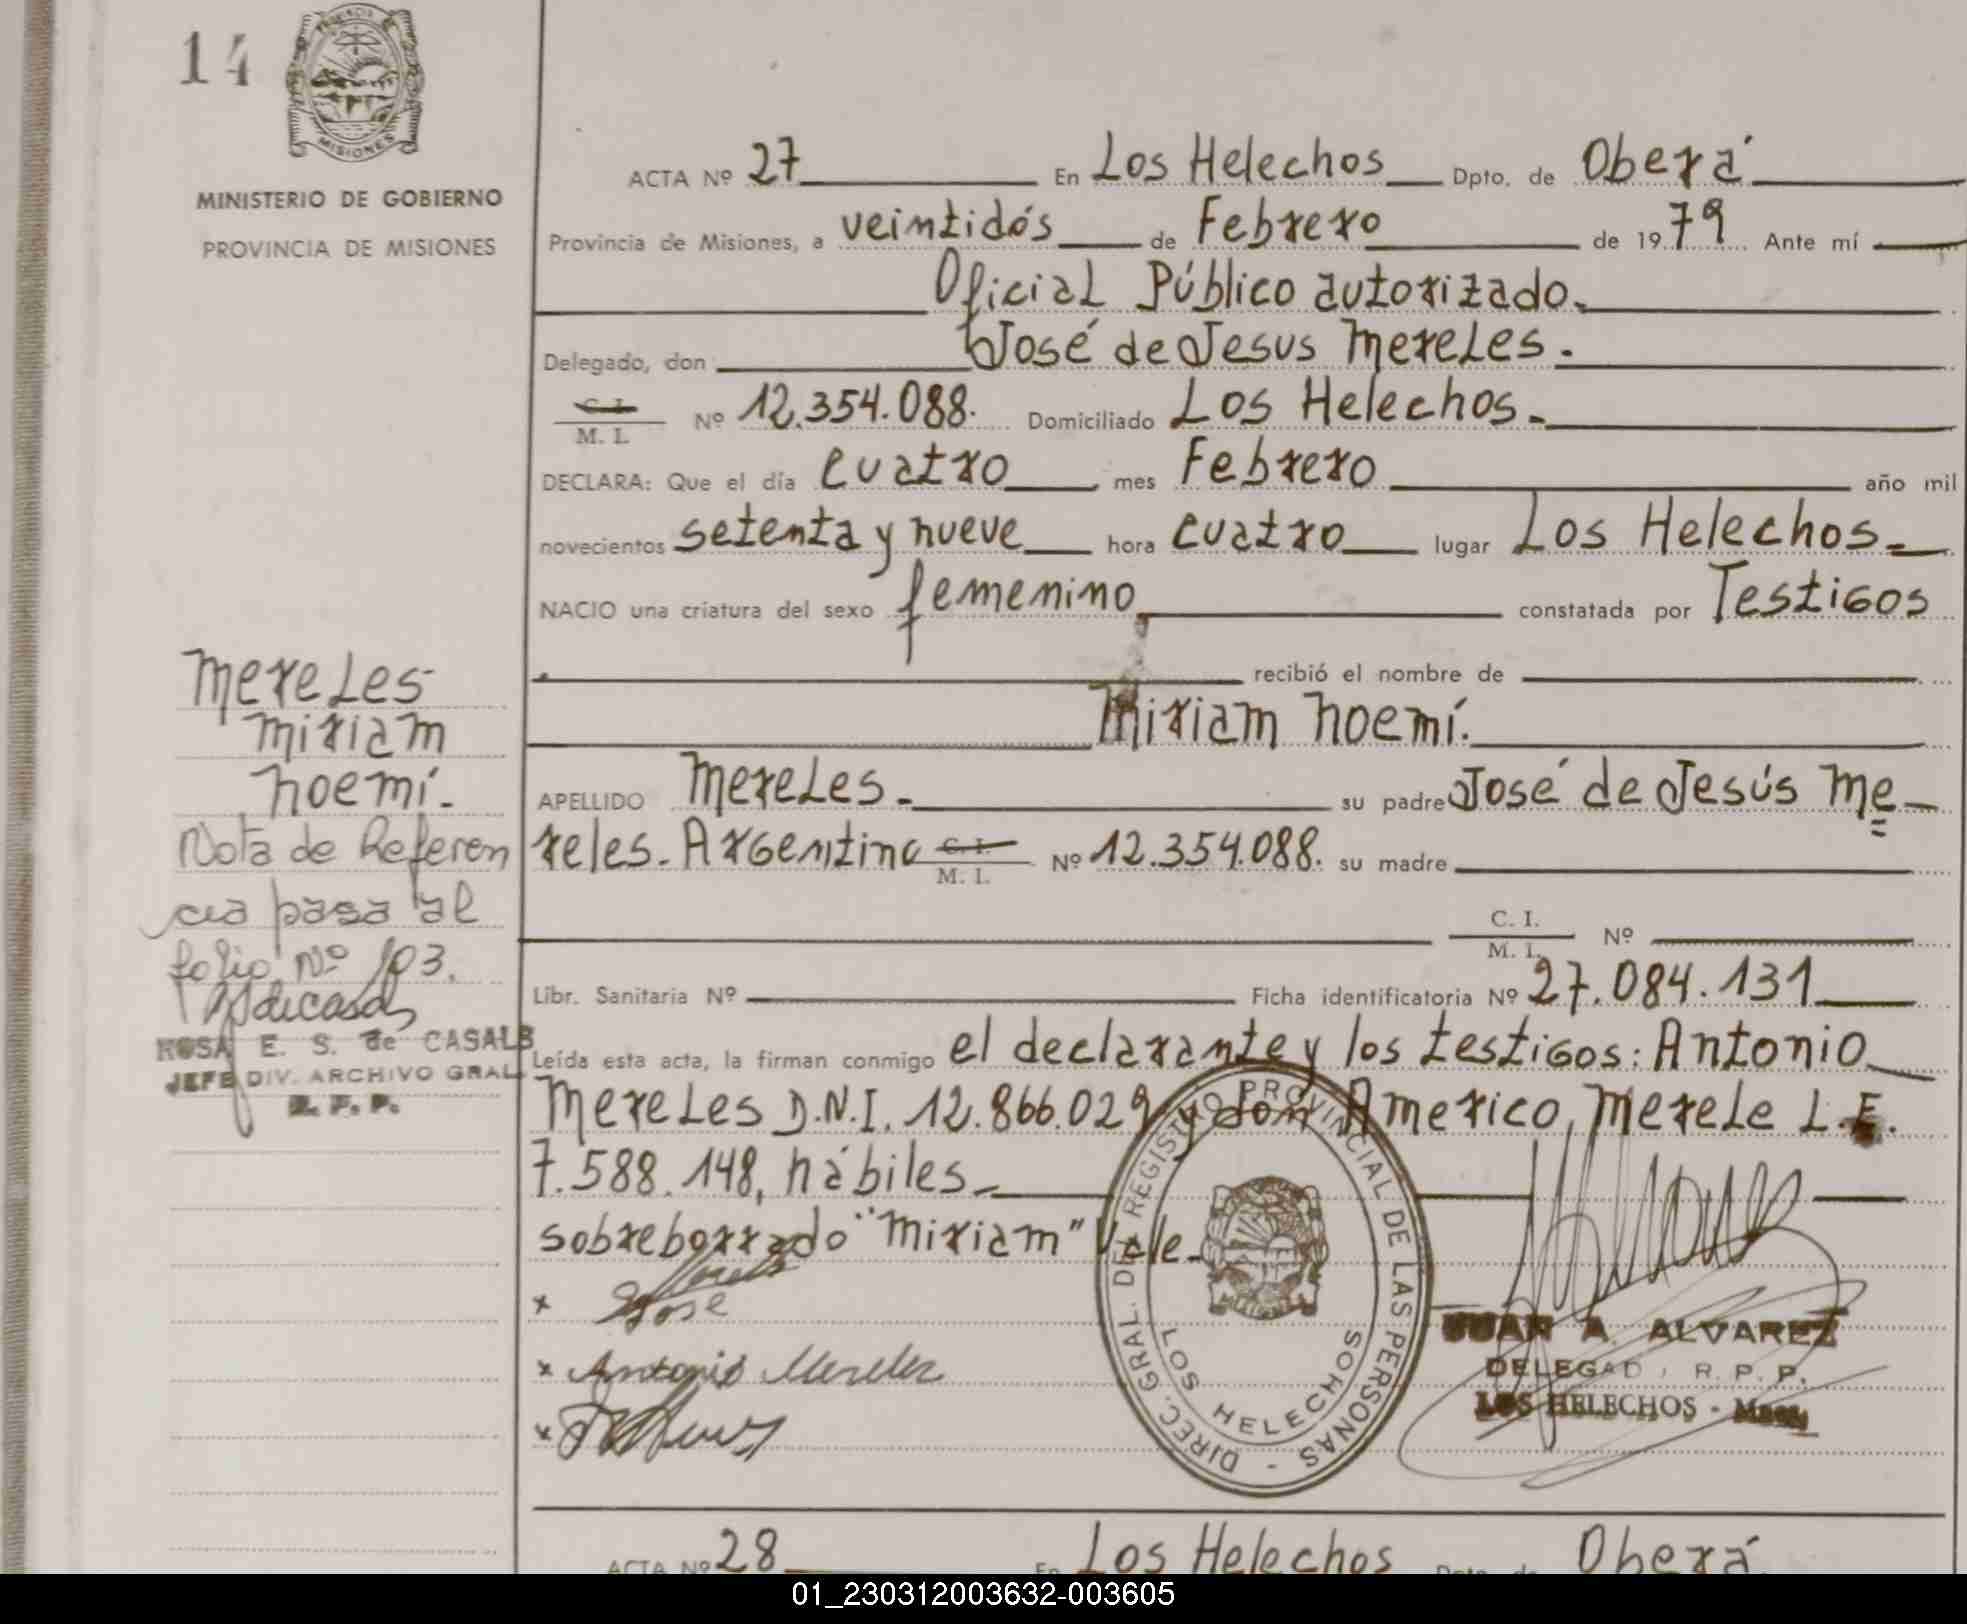 14
PROVINCIA DE
MISIONES
MINISTERIO DE GOBIERNO
PROVINCIA DE MISIONES
ACTA Nº 27 En Los Helechos Dpto. de Oberá
Provincia de Misiones, a veintidós de Febrero de 1979 Ante mí
Oficial Público autorizado.
Delegado, don José de Jesus Mereles.
C. I. M. I. Nº 12.354.088. Domiciliado Los Helechos.
DECLARA: Que el día cuatro mes Febrero año mil
novecientos setenta y nueve hora cuatro lugar Los Helechos.
NACIO una criatura del sexo femenino constatada por Testigos
recibió el nombre de
Miriam Noemí.
APELLIDO Mereles. su padre José de Jesús Me
reles. Argentino C. I. M. I. Nº 12.354.088. su madre
C. I. M. I. Nº
Libr. Sanitaria Nº Ficha identificatoria Nº 27.084.131
Leída esta acta, la firman conmigo el declarante y los testigos: Antonio
Mereles D.N.I. 12.866.029 y don Americo Merele L.E.
7.588.148, hábiles
sobreborrado "Miriam" Vale
Mereles
Miriam
Noemí.
Nota de Referen
cia pasa al
folio Nº 103.
ROSA E. S. de CASALS
JEFE DIV. ARCHIVO GRAL.
R. P. P.
x José
x Antonio Mereles
x
DIREC. GRAL. DEL REGISTRO PROVINCIAL DE LAS PERSONAS -
LOS HELECHOS
JUAN A. ALVAREZ
DELEGADO R. P. P.
LOS HELECHOS - Mnes
ACTA Nº 28 En Los Helechos Dpto. de Oberá
01_230312003632-003605